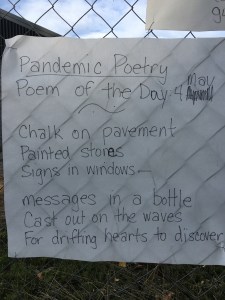 94
Pandemic Poetry
Poem of the Day 4 May
Chalk on pavement
Painted stones
Signs in windows-
messages in a bottle
Cast out on the waves
For drifting hearts to discover